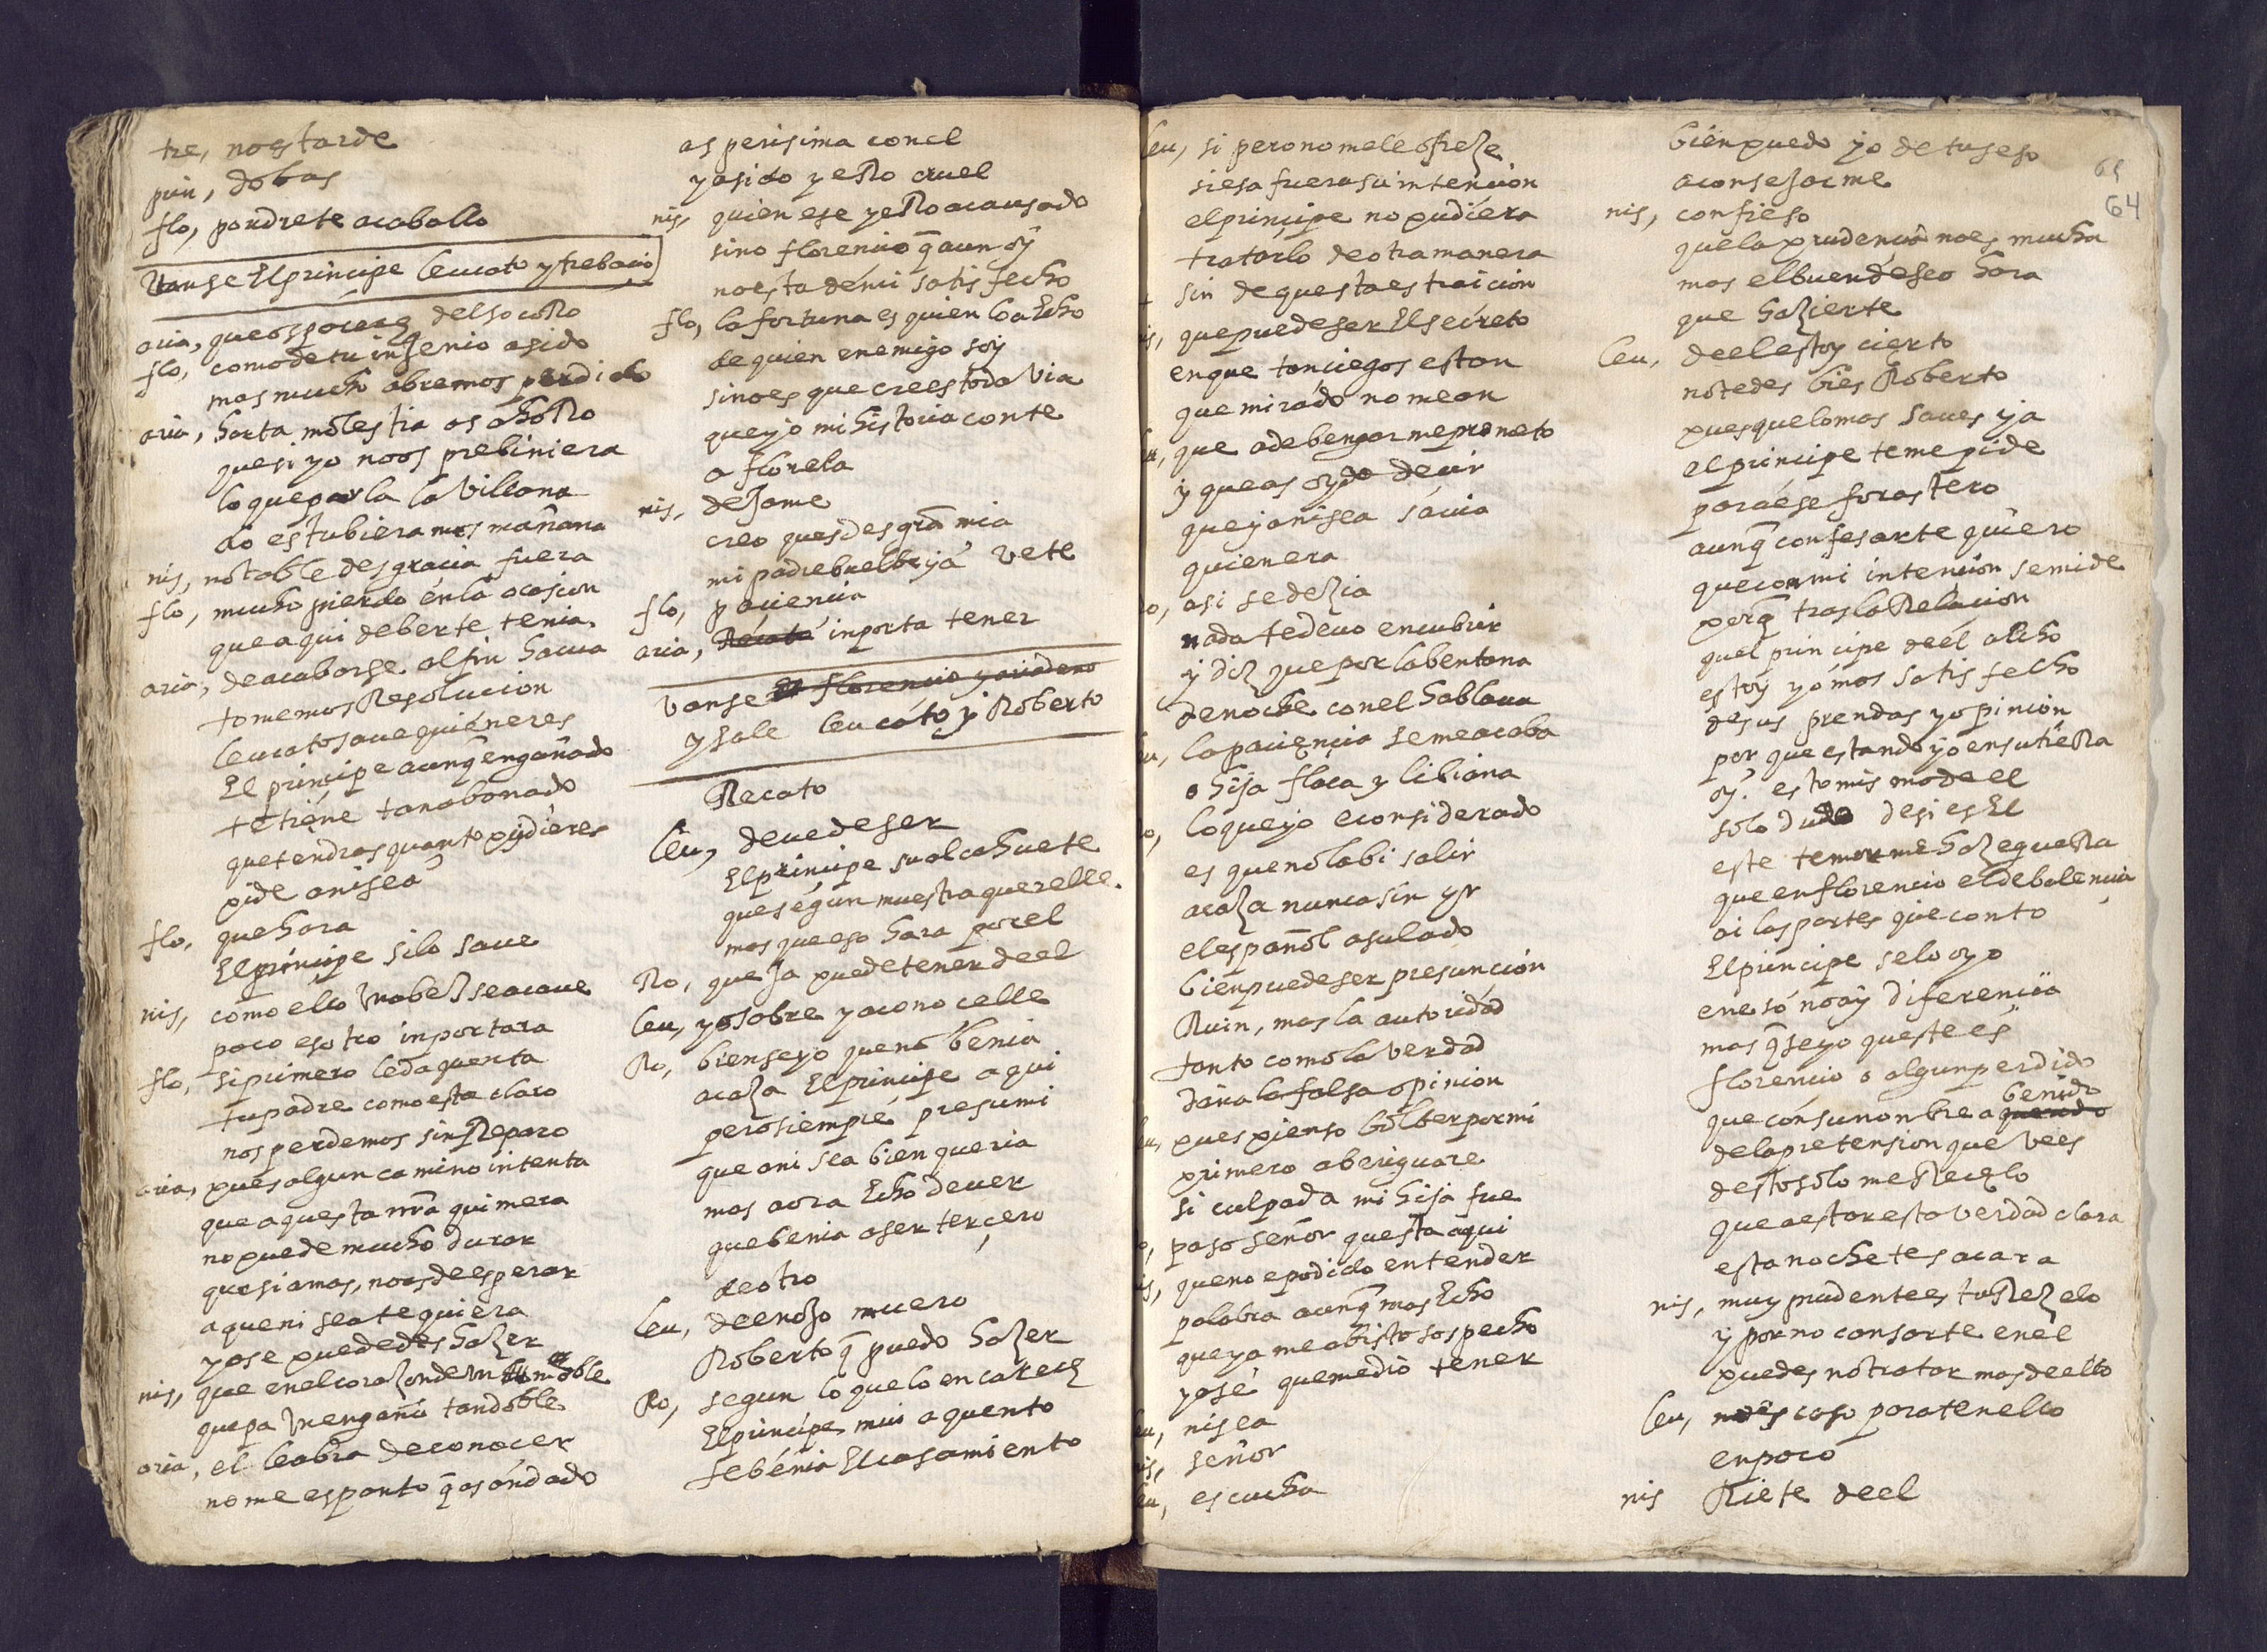 tre, no es tarde
prin, dobas
flo, pondrete a caballo
Vanse El principe leucato y trebacio
aria, que os parece del socoRo
flo, como de tu injenio a sido
mas mucho abremos perdido
aria, harta molestia os ahoRo
que si yo no os prebiniera
lo que parla la villana
do estubieramos mañana
nis, notable desgracia fuera
flo, mucho pierdo en la ocasion
que aqui de berte tenia
aria, de acabarse al fin hauia
tomemos Resolucion
leucato saue quien eres
El principe aunq̃ engañado
te tiene tan abonado
que tendras quanto pidieres
pide a nisea
flo, que hara
El principe si lo saue
nis, como ello vna bez se acaue
poco esotro inportara
flo, si primero le da quenta
tu padre como esta claro
nos perdemos sin Reparo
aria, pues algun camino intenta
que aquesta nr̃a quimera
no puede mucho durar
que si amas, no as de esperar
a que nisea te quiera
yo se puede deshazer
nis, que en el corazon de vn noble
quepa vn engaño tan doble
aria, el le abra de conocer
no me espanto q̃ as andado
asperisima con el
y a sido yeRo cruel
nis, quien ese yeRo a causado
sino florencio q̃ aun oy
no esta de mi satisfecho
flo, la fortuna es quien lo a Echo
de quien enemigo soy
sino es que crees toda via
que yo mi historia conte
a florela
nis, dejame
creo ques desgra͂ mia
mi padre buelbe ya vete
flo, paciencia
aria, Recato inporta tener
Vanse El florencio y ariadeno
y sale leucato y Roberto
Recato
leu, deue de ser
El principe su alcahuete
que segun muestra querelle
mas que eso hara por el
Ro, queja puede tener de el
leu, yo sobre ya conocelle
Ro, bien se yo que no benia
a caza El principe aqui
pero siempre presumi
que a nisea bien queria
mas aora Echo de uer
que benia a ser tercero
de otro
leu, de enojo muero
Roberto q̃ puedo hazer
Ro, segun lo que lo encarece
El principe mui a quento
se benia El casamiento
leu, si pero no me le ofreze
si esa fuera su intencion
el principe no pudiera
tratarlo de otra manera
sin de questa es traicion
nis, que puede ser El secreto
en que tan ciegos estan
que mirado no me an
leu, que a de bengarme prometo
y que as oydo decir
que ya nisea sauia
quien era
Ro, asi se dezia
nada te deuo encubrir
y diz que por la bentana
de noche con el hablaua
leu, la paciencia se me acaba
o hija flaca y libiana
Ro, lo que yo e considerado
es que no la bi salir
a caza nunca sin yr
el español a su lado
bien puede ser presuncion
Ruin, mas la autoridad
tanto como la verdad
daña la falsa opinion
leu, pues pienso bolber por mi
primero aberiguare
si culpada mi hija fue
Ro, paso señor questa aqui
nis, que no e podido entender
palabra aunq̃ mas Echo
que ya me a bisto sospecho
yo se que medio tener
leu, nisea
nis, señor
leu, escucha
bien puedo yo de tu seso
aconsejarme
nis, confieso
que la prudencia no es mucha
mas el buen deseo hara
que hazierte
leu, de el estoy cierto
no te des bies Roberto
pues que lo mas saues ya
el principe te me pide
para ese forastero
aunq̃ confesarte quiero
que con mi intencion se mide
porq̃ tras la Relacion
quel principe de el a Echo
estoy yo mas satisfecho
de sus prendas y opinion
por que estando yo en su tieRa
oy esto mismo de el
solo dudo de si es El
este temor me haze gueRa
que en florencio el de balencia
ai las partes que conto
El principe se lo oyo
en eso no ay diferencia
mas q̃ se yo queste es
florencio o algun perdido
que con su nonbre a querido benido
de la pretension que vees
desto solo me Recelo
que a estar esta verdad clara
esta noche te sacara
nis, muy prudente es tu Rezelo
y por no cansarte en el
puedes no tratar mas de ello
leu, no es caso para tenello
en poco
nis Riete de el
65
64